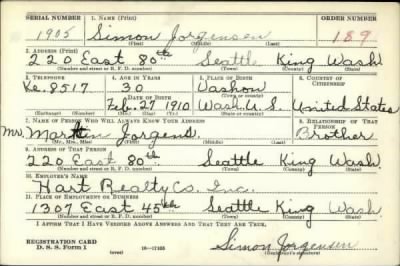 SERIAL NUMBER 1. NAME (Print) ORDER NUMBER
1905 Simon Jorgensen 189
(First) (Middle) (Last)
2. ADDRESS (Print)
220 East 80th Seattle King Wash
(Number and street or R. F. D. number) (Town) (County) (State)
3. TELEPHONE 4. AGE IN YEARS 5. PLACE OF BIRTH 6. COUNTRY OF CITIZENSHIP
Ke. 8517 30 Vashon
DATE OF BIRTH (Town or county)
Feb. 27 1910 Wash. U.S. United States
(Mo.) (Day) (Yr.) (State or country)
7. NAME OF PERSON WHO WILL ALWAYS KNOW YOUR ADDRESS 8. RELATIONSHIP OF THAT PERSON
Mr. Martin Jorgens. Brother
(Mr., Mrs., Miss) (First) (Middle) (Last)
9. ADDRESS OF THAT PERSON
220 East 80th Seattle King Wash
(Number and street or R. F. D. number) (Town) (County) (State)
10. EMPLOYER'S NAME
Hart Realty Co. Inc.
11. PLACE OF EMPLOYMENT OR BUSINESS
1307 East 45th Seattle King Wash.
(Number and street or R. F. D. number) (Town) (County) (State)
I AFFIRM THAT I HAVE VERIFIED ABOVE ANSWERS AND THAT THEY ARE TRUE.
REGISTRATION CARD
D. S. S. Form 1 (over) Simon Jorgensen
(Registrant's signature)